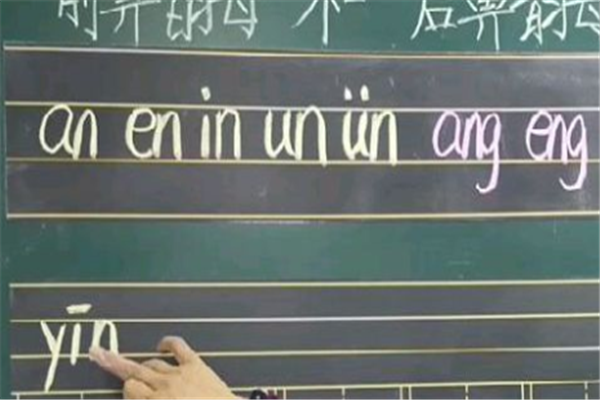 前鼻韵母 和 后鼻韵母
an en in un ün ang eng
yīn